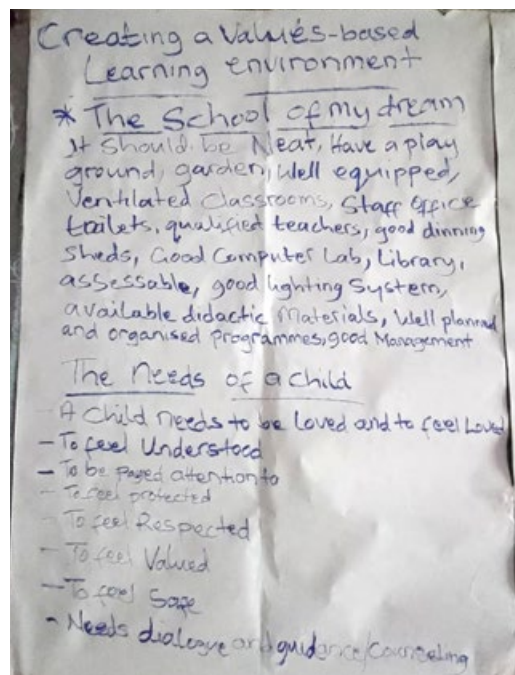 Creating a Values-based
Learning environment
* The School of my dream
It should be Neat, Have a play
ground, garden, Well equipped,
Ventilated Classrooms, Staff Office
toilets, qualified teachers, good dinning
Sheds, Good Computer Lab, Library,
assessable, good lighting System,
available didactic Materials, Well planned
and organised programmes, good Management
The Needs of a child
- A Child needs to be Loved and to feel Loved
- To feel Understood
- To be payed attention to
- To feel protected
- To feel Respected
- To feel Valued
- To feel Safe
- Needs dialogue and guidance/Counseling